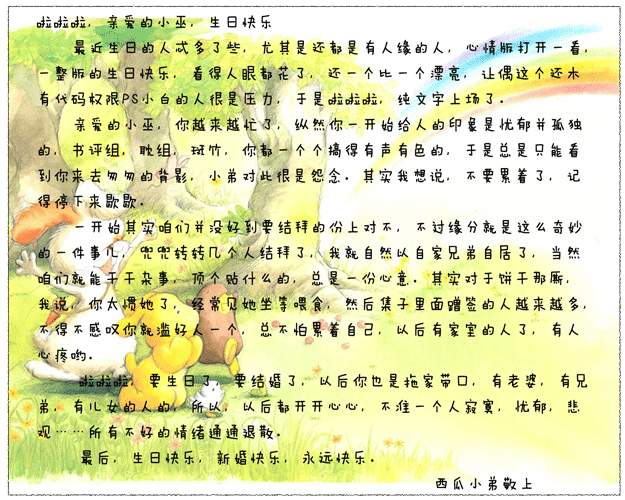 啦啦啦，亲爱的小巫，生日快乐
最近生日的人忒多了些，尤其是还都是有人缘的人，心情版打开一看，
一整版的生日快乐，看得人眼都花了，还一个比一个漂亮，让偶这个还木
有代码权限PS小白的人很是压力，于是啦啦啦，纯文字上场了。
亲爱的小巫，你越来越忙了，纵然你一开始给人的印象是忧郁并孤独
的，书评组，耽组，斑竹，你都一个个搞得有声有色的，于是总是只能看
到你来去匆匆的背影，小弟对此很是怨念。其实我想说，不要累着了，记
得停下来歇歇。
一开始其实咱们并没好到要结拜的份上对不，不过缘分就是这么奇妙
的一件事儿，兜兜转转几个人结拜了，我就自然以自家兄弟自居了，当然
咱们就能干干杂事，顶个贴什么的，总是一份心意。其实对于饼干那厮，
我说，你太惯她了，经常见她坐等喂食，然后集子里面蹭签的人越来越多，
不得不感叹你就滥好人一个，总不怕累着自己，以后有家室的人了，有人
心疼哟。
啦啦啦，要生日了，要结婚了，以后你也是拖家带口，有老婆，有兄
弟，有儿女的人的，所以，以后都开开心心，不准一个人寂寞，忧郁，悲
观……所有不好的情绪通通退散。
最后，生日快乐，新婚快乐，永远快乐。
西瓜小弟敬上